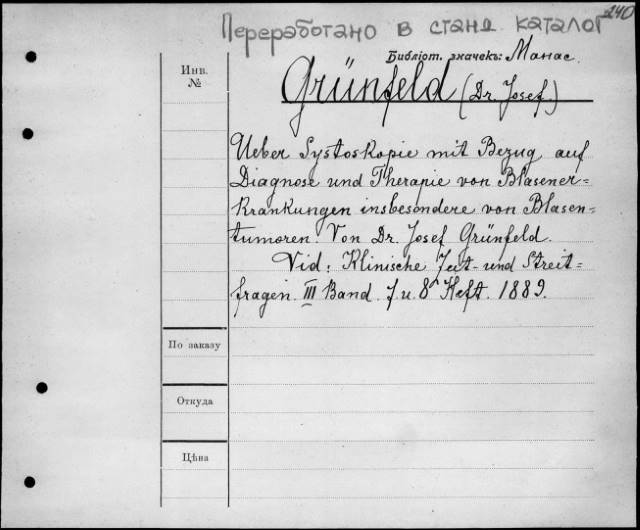 240
Переработано в станд каталог
Библіот. значекъ: Манас.
Инв.
№
Grünfeld (Dr. Josef.)
Ueber Systoskopie mit Bezug auf
Diagnose und Therapie von Blasener=
krankungen insbesondere von Blasen=
tumoren. Von Dr. Josef Grünfeld.
Vid: Klinische Zeit- und Streit=
fragen. III Band. 7 u. 8 Heft. 1889.
По заказу
Откуда
Цѣна